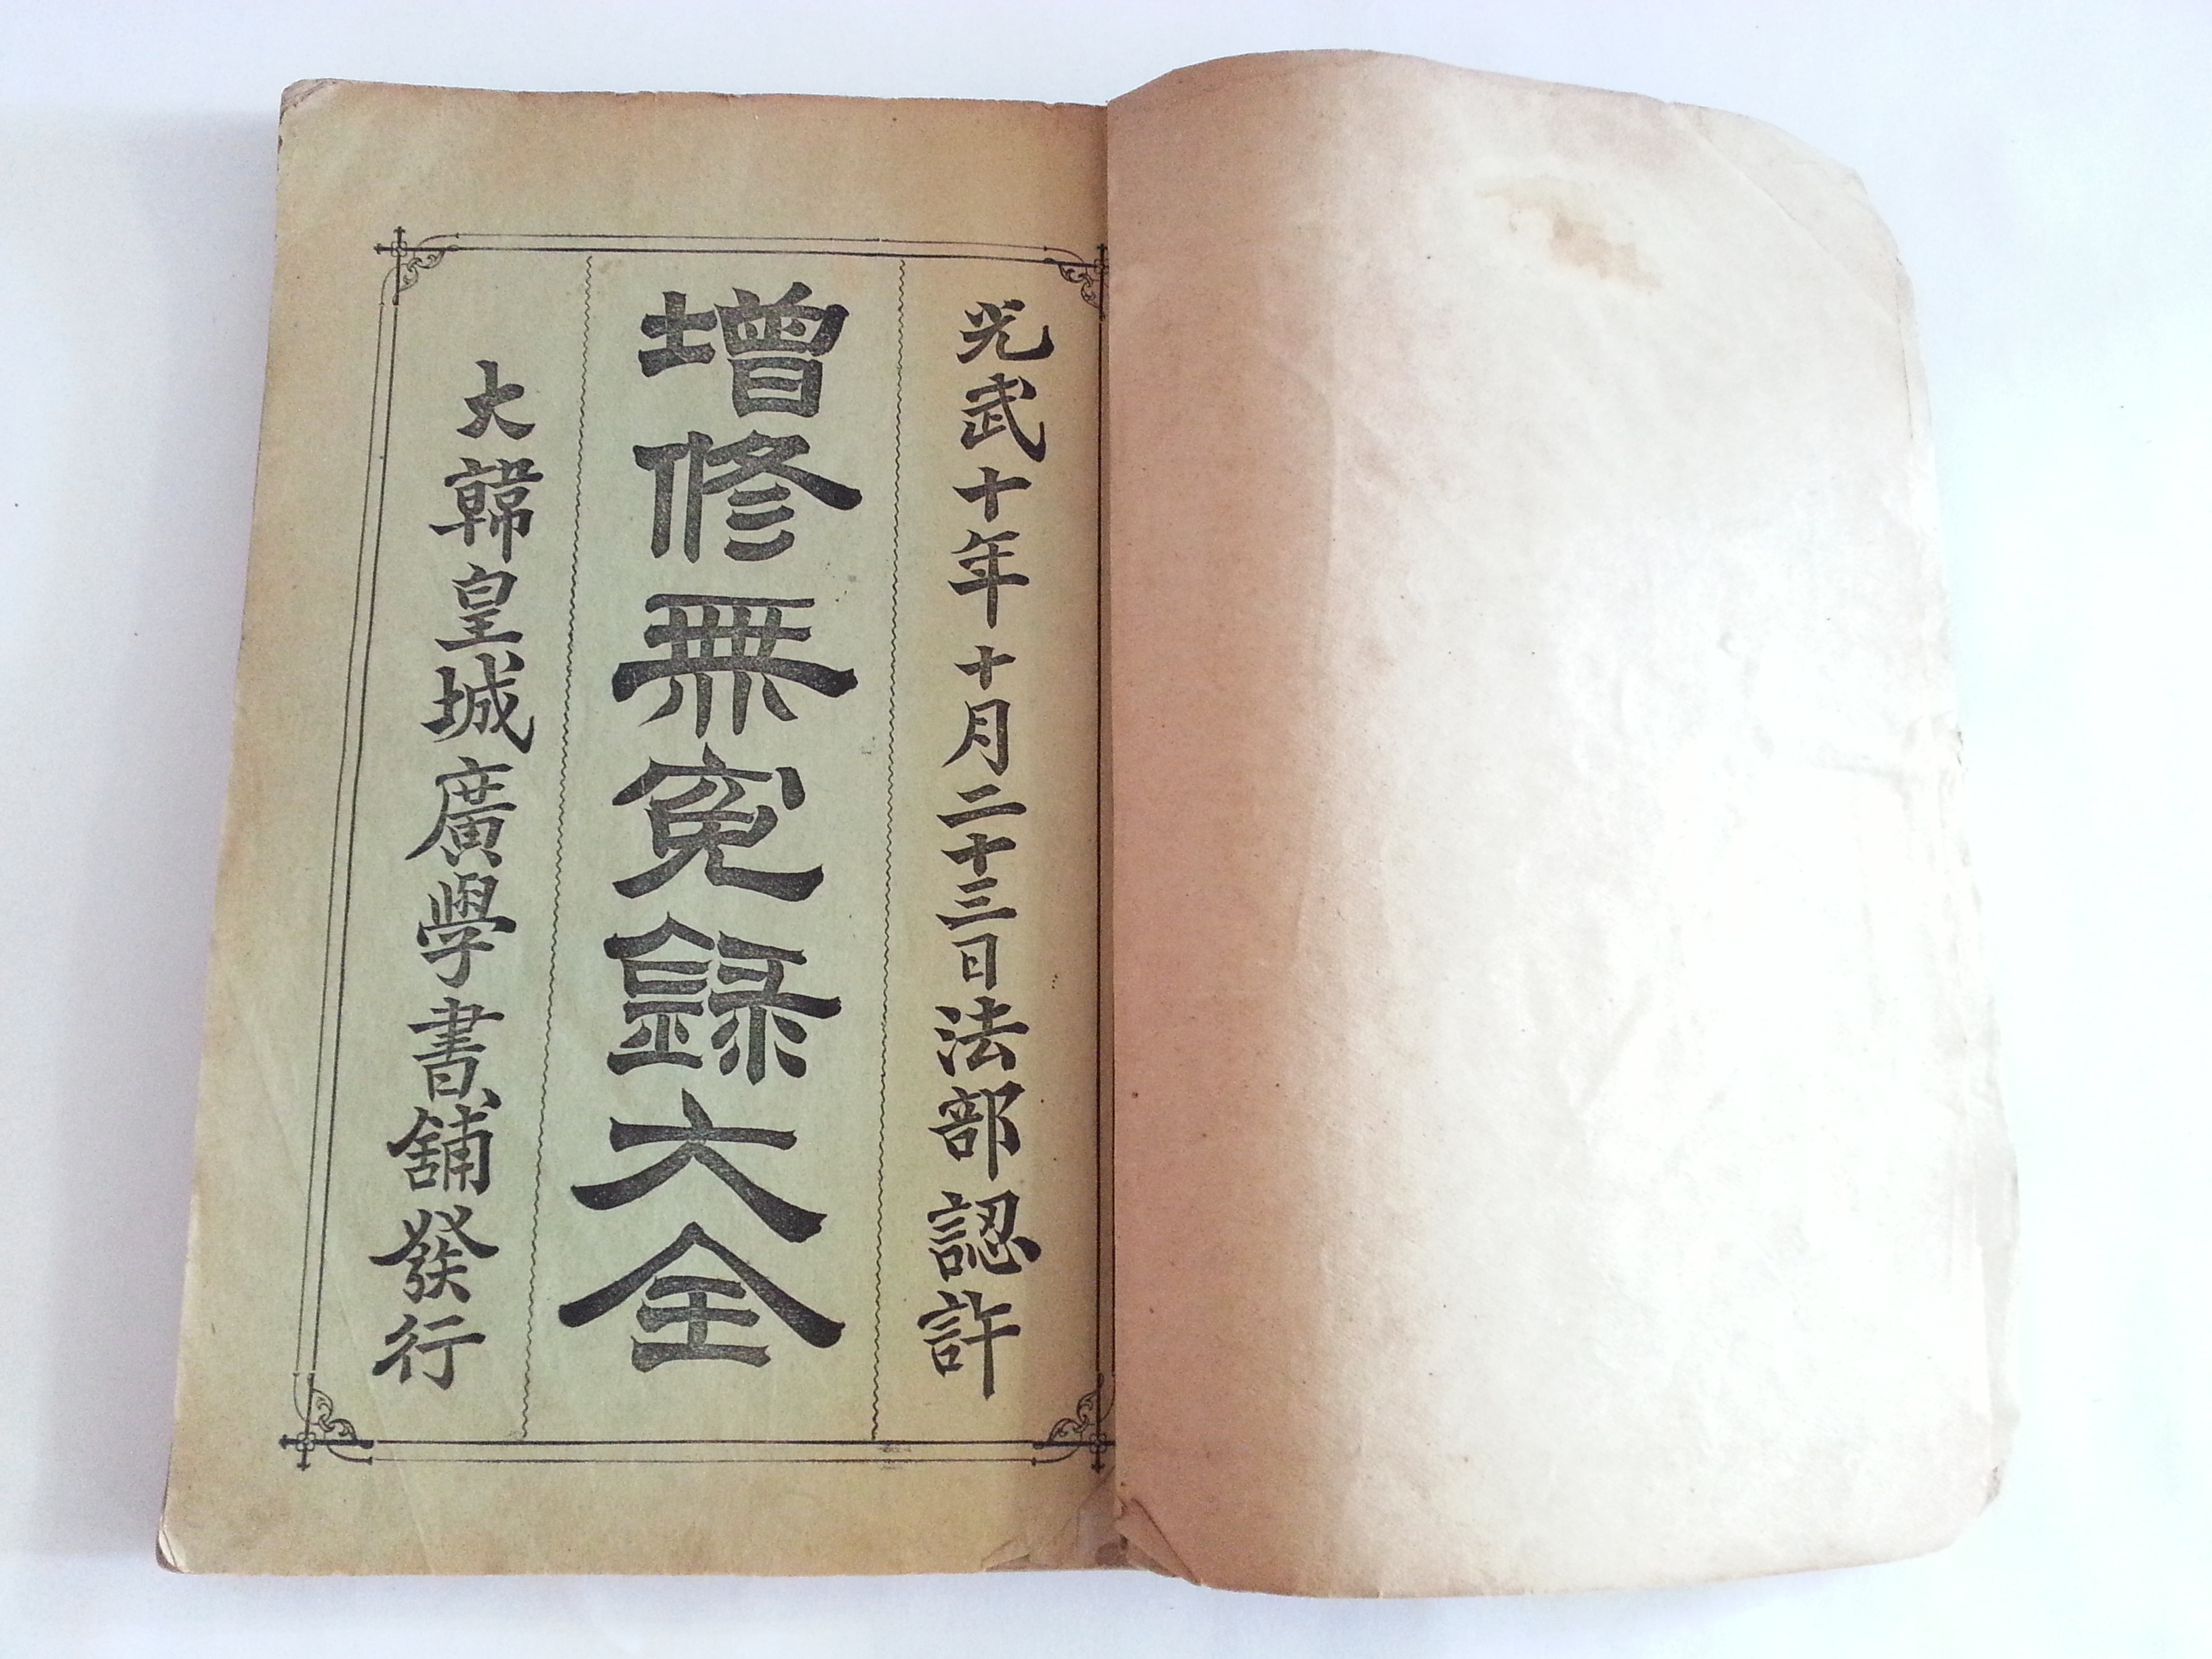 光武十年十月二十三日法部認許
增修無寃錄大全
大韓皇城廣學書舖發行